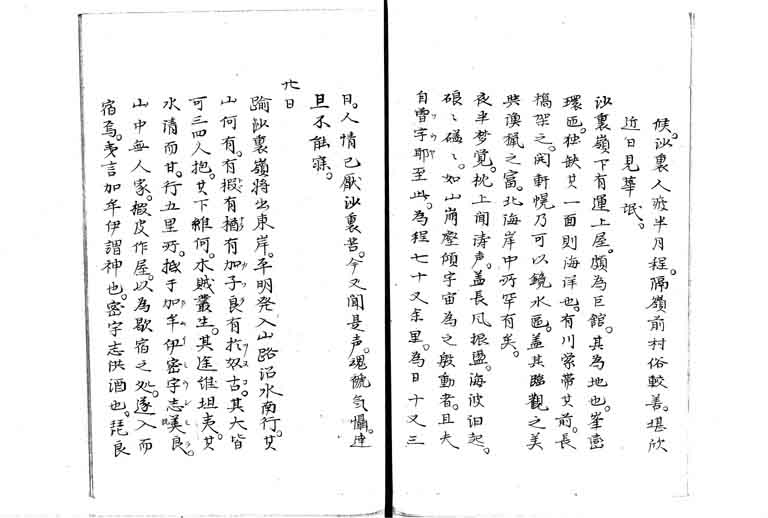 候。沙裏人疲半月程。隔嶺前村俗較善。堪欣
近日見華氓。
沙裏嶺下有運上屋。頗為巨館。其為地也。峯巒
環匝。独缺其一面則海洋也。有川縈帯其前。長
橋架之。開軒幌乃可以鏡水區。蓋其臨観之美
与漁猟之富。北海岸中所罕有矣。
夜半夢覚。枕上聞涛声。蓋長風振盪。海波汨起。
硠々礚々。如山崩壑傾宇宙為之殷動者。且夫
自雷字耶至此。為程七十又余里。為日十又三
日。人情已厭沙裏苦。今又聞是声。魂競気懾。達
旦不能寐。
廿日
踰沙裏嶺将出東岸。平明発入山路沿水南行。其
山何有。有椴有楢有加子良有於奴古。其大皆
可三四人抱。其下維何。水賊叢生。其途維坦夷。其
水清而甘。行五里所。抵于加牟伊密字志嘆良。
山中無人家。椴皮作屋。以為歇宿之処。遂入而
宿焉。夷言加牟伊謂神也。密字志洪酒也。琵良